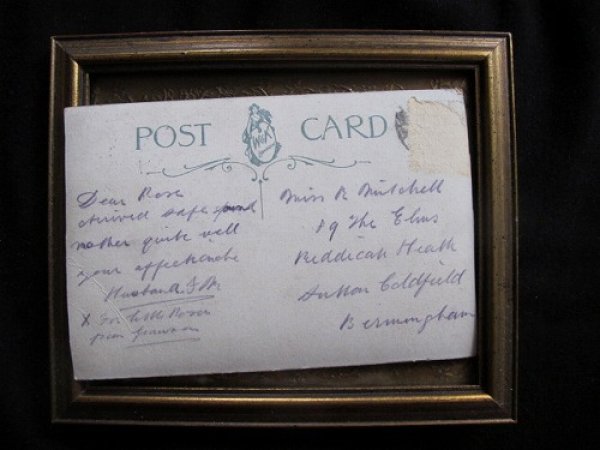 POST CARD
Dear Rose
arrived safe found
mother quite well
your affectionate
Husband F M
X For little Rosie
from
Miss R Mitchell
19 The Elms
Reddicah Heath
Sutton Coldfield
Bermingham